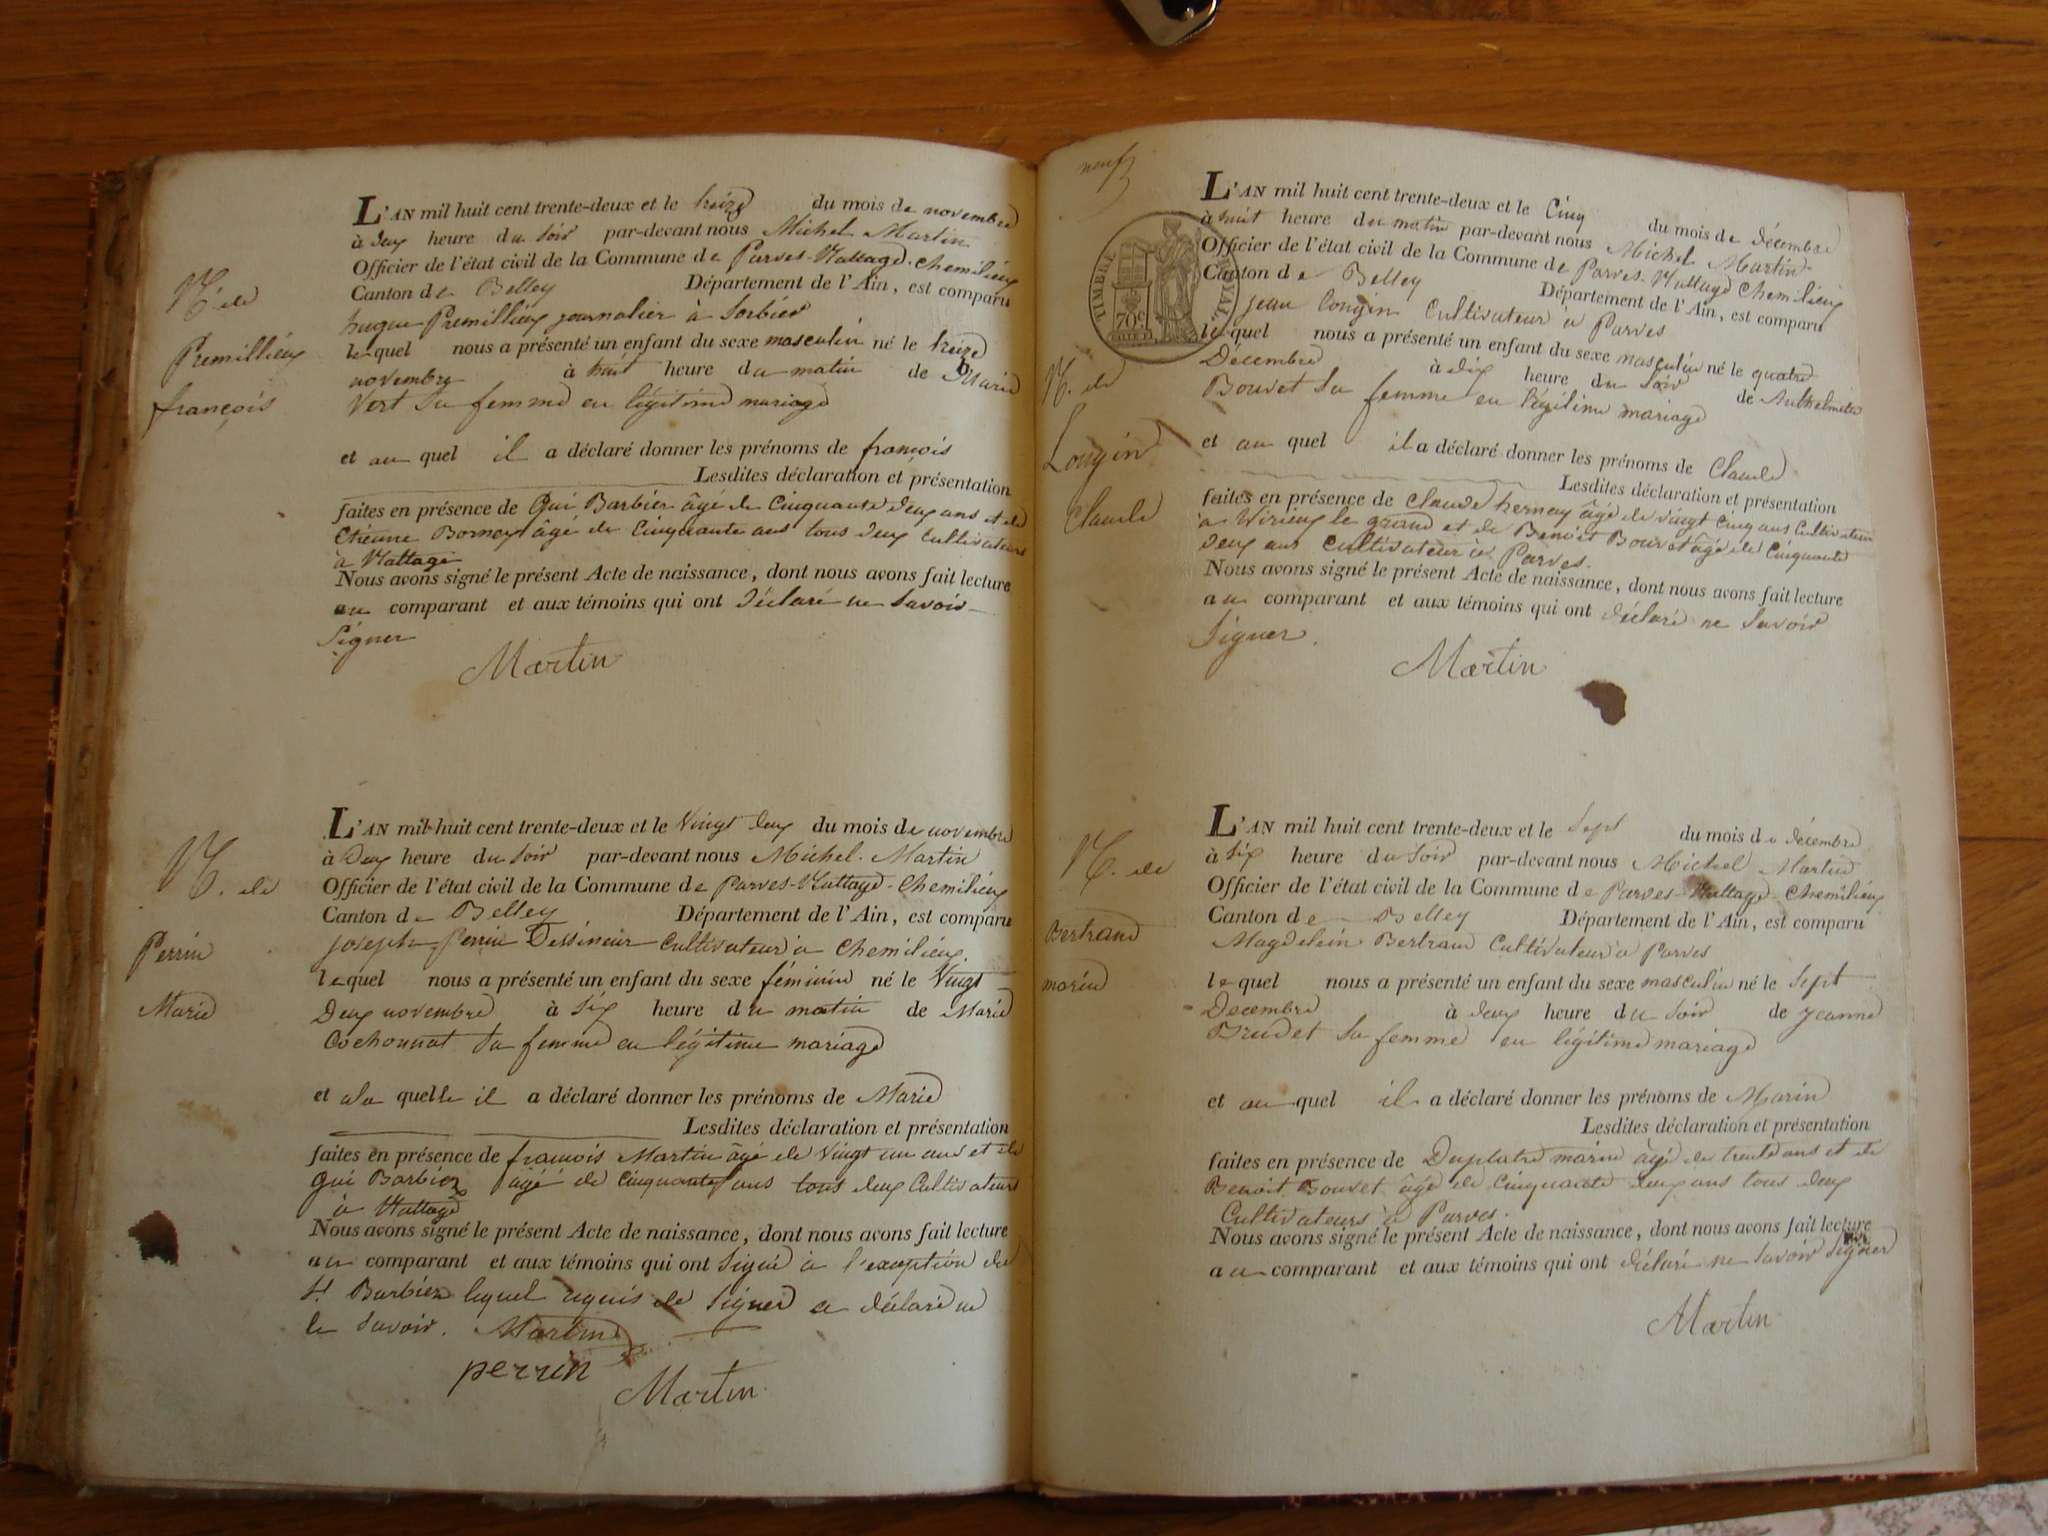 N. de
Premillieux
françois
L'AN mil huit cent trente-deux et le treize du mois de novembre
à deux heure du soir par-devant nous Michel Martin
Officier de l'état civil de la Commune de Parves-Nattage-Chemilieux
Canton de Belley Département de l'Ain, est comparu
hugue Premillieux journalier à Sorbier
lequel nous a présenté un enfant du sexe masculin né le treize
novembre à huit heure du matin de Marie
Vert sa femme en légitime mariage
et au quel il a déclaré donner les prénoms de françois
Lesdites déclaration et présentation
faites en présence de Gui Barbier âgé de Cinquante deux ans et de
Etienne Borney âgé de Cinquante ans tous deux Cultivateurs
à Nattage
Nous avons signé le présent Acte de naissance, dont nous avons fait lecture
au comparant et aux témoins qui ont déclaré ne Savoir
Signer
Martin
N. de
Perrin
Marie
L'AN mil huit cent trente-deux et le Vingt deux du mois de novembre
à Deux heure du Soir par-devant nous Michel Martin
Officier de l'état civil de la Commune de Parves-Nattage-Chemilieux
Canton de Belley Département de l'Ain, est comparu
joseph Perrin Dessineur Cultivateur à Chemilieux
lequel nous a présenté un enfant du sexe féminin né le Vingt
Deux novembre à Six heure du matin de Marie
Cochonnat Sa femme en légitime mariage
et ala quelle il a déclaré donner les prénoms de Marie
Lesdites déclaration et présentation
faites en présence de françois Martin âgé de Vingt un ans et de
Gui Barbier âgé de Cinquante ans tous deux Cultivateurs
à Nattage
Nous avons signé le présent Acte de naissance, dont nous avons fait lecture
au comparant et aux témoins qui ont Signé à l'exception de
Barbier lequel requis de Signer a déclaré ne
le Savoir. Martin
perrin
Martin
neuf
TIMBRE ROYAL
70c
N. de
Longin
Claude
L'AN mil huit cent trente-deux et le Cinq du mois de décembre
à huit heure du matin par-devant nous Michel Martin
Officier de l'état civil de la Commune de Parves-Nattage Chemilieux
Canton de Belley Département de l'Ain, est comparu
jean Longin Cultivateur à Parves
lequel nous a présenté un enfant du sexe masculin né le quatre
Décembre à dix heure du Soir de Anthelmette
Bouvet Sa femme en légitime mariage
et au quel il a déclaré donner les prénoms de Claude
Lesdites déclaration et présentation
faites en présence de Claude hernay âgé de vingt cinq ans Cultivateur
à Virieux le grand et de Benoit Bouvet âgé de Cinquante
deux ans Cultivateur à Parves.
Nous avons signé le présent Acte de naissance, dont nous avons fait lecture
au comparant et aux témoins qui ont déclaré ne Savoir
Signer.
Martin
N. de
Bertrand
marin
L'AN mil huit cent trente-deux et le Sept du mois de décembre
à Six heure du Soir par-devant nous Michel Martin
Officier de l'état civil de la Commune de Parves-Nattage-Chemilieux
Canton de Belley Département de l'Ain, est comparu
Magdelein Bertrand Cultivateur à Parves
lequel nous a présenté un enfant du sexe masculin né le Sept
Decembre à deux heure du Soir de jeanne
Sa femme en légitime mariage
et au quel il a déclaré donner les prénoms de Marin
Lesdites déclaration et présentation
faites en présence de Duplatre marin âgé de trente ans et de
Benoit Bouvet âgé de Cinquante deux ans tous deux
Cultivateurs à Parves.
Nous avons signé le présent Acte de naissance, dont nous avons fait lecture
au comparant et aux témoins qui ont déclaré ne Savoir Signer
Martin